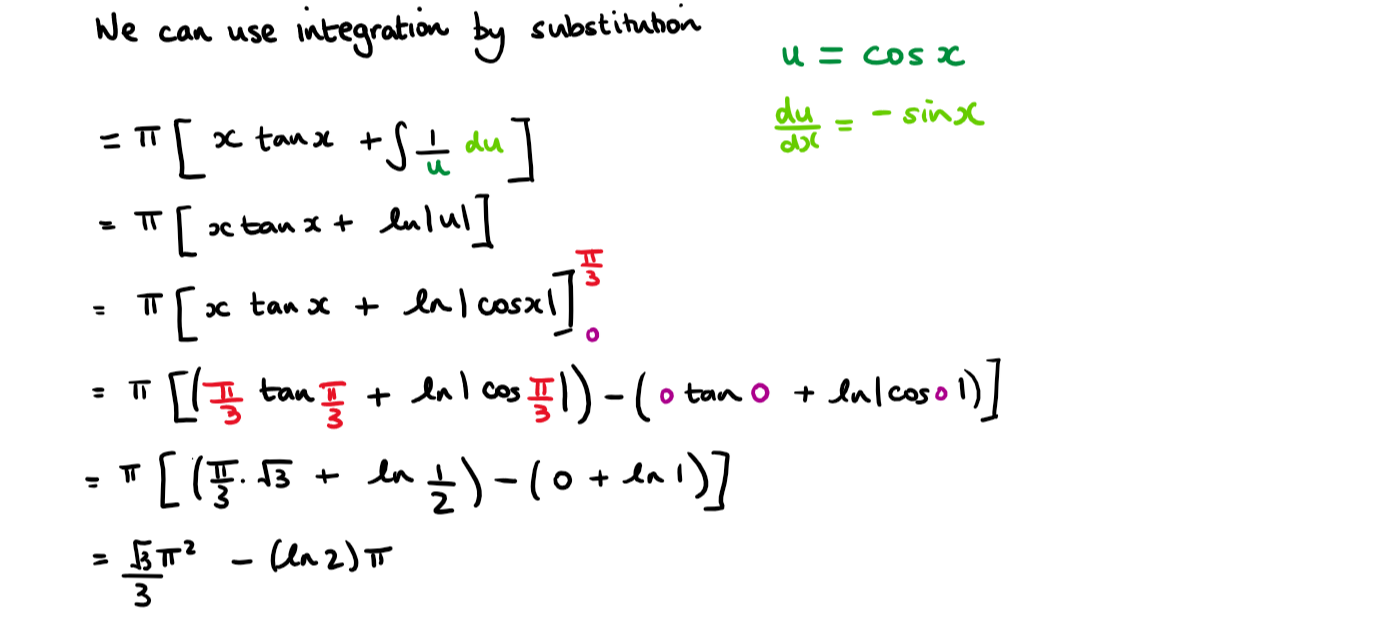 We can use integration by substitution
u = cos x
du/dx = - sinx
= π [ x tan x + ∫ 1/u du ]
= π [ x tan x + ln|u| ]
= π [ x tan x + ln|cosx| ]^{π/3}_{0}
= π [(π/3 tan π/3 + ln|cos π/3|) - (0 tan 0 + ln|cos0|)]
= π [(π/3 · √3 + ln 1/2) - (0 + ln 1)]
= √3/3 π² - (ln 2) π